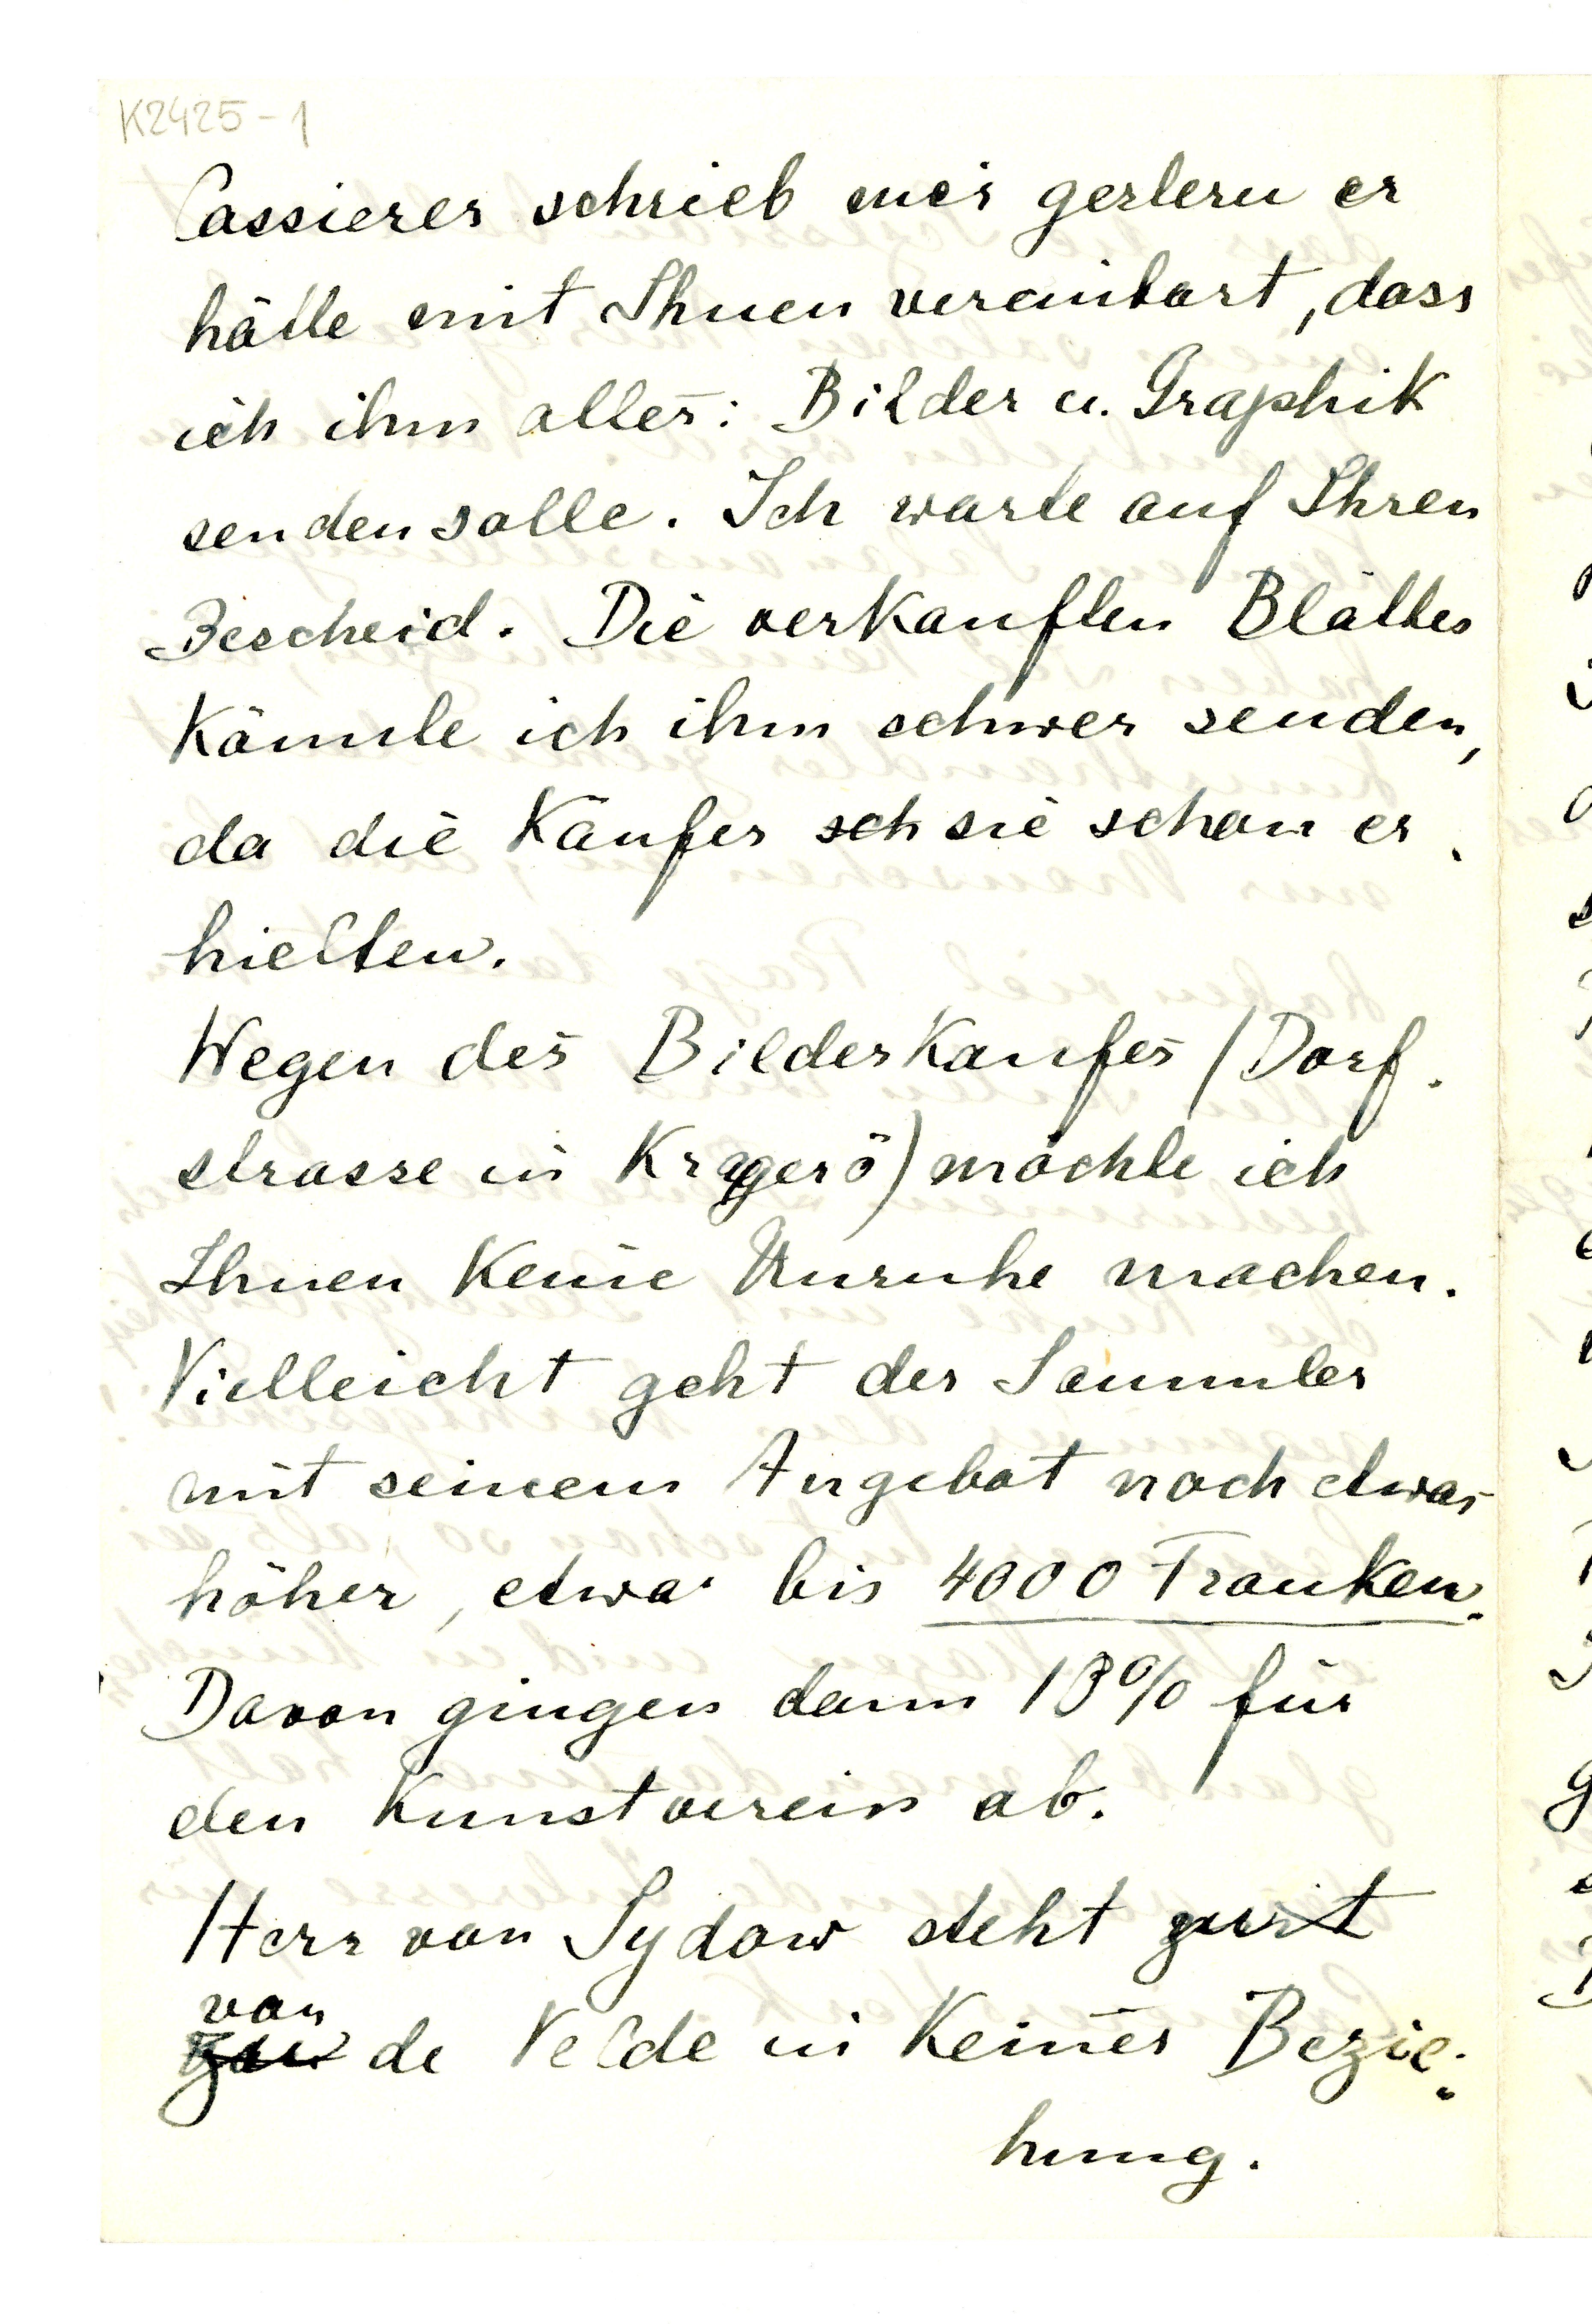 K2425-1
Cassierer schrieb mir gestern er
hätte mit Ihnen vereinbart, dass
ich ihm alles: Bilder u. Graphik
senden solle. Ich warte auf Ihren
Bescheid. Die verkauften Blätter
könnte ich ihm schwer senden,
da die Käufer sch sie schon er-
hielten.
Wegen des Bilderkaufes (Dorf-
strasse in Kragerö) möchte ich
Ihnen keine Unruhe machen.
Vielleicht geht der Sammler
mit seinem Angebot noch etwas
höher, etwa bis 4000 Franken.
Davon gingen dann 13% für
den Kunstverein ab.
Herr von Sydow steht mit
van
de Velde in keiner Bezie-
hung.